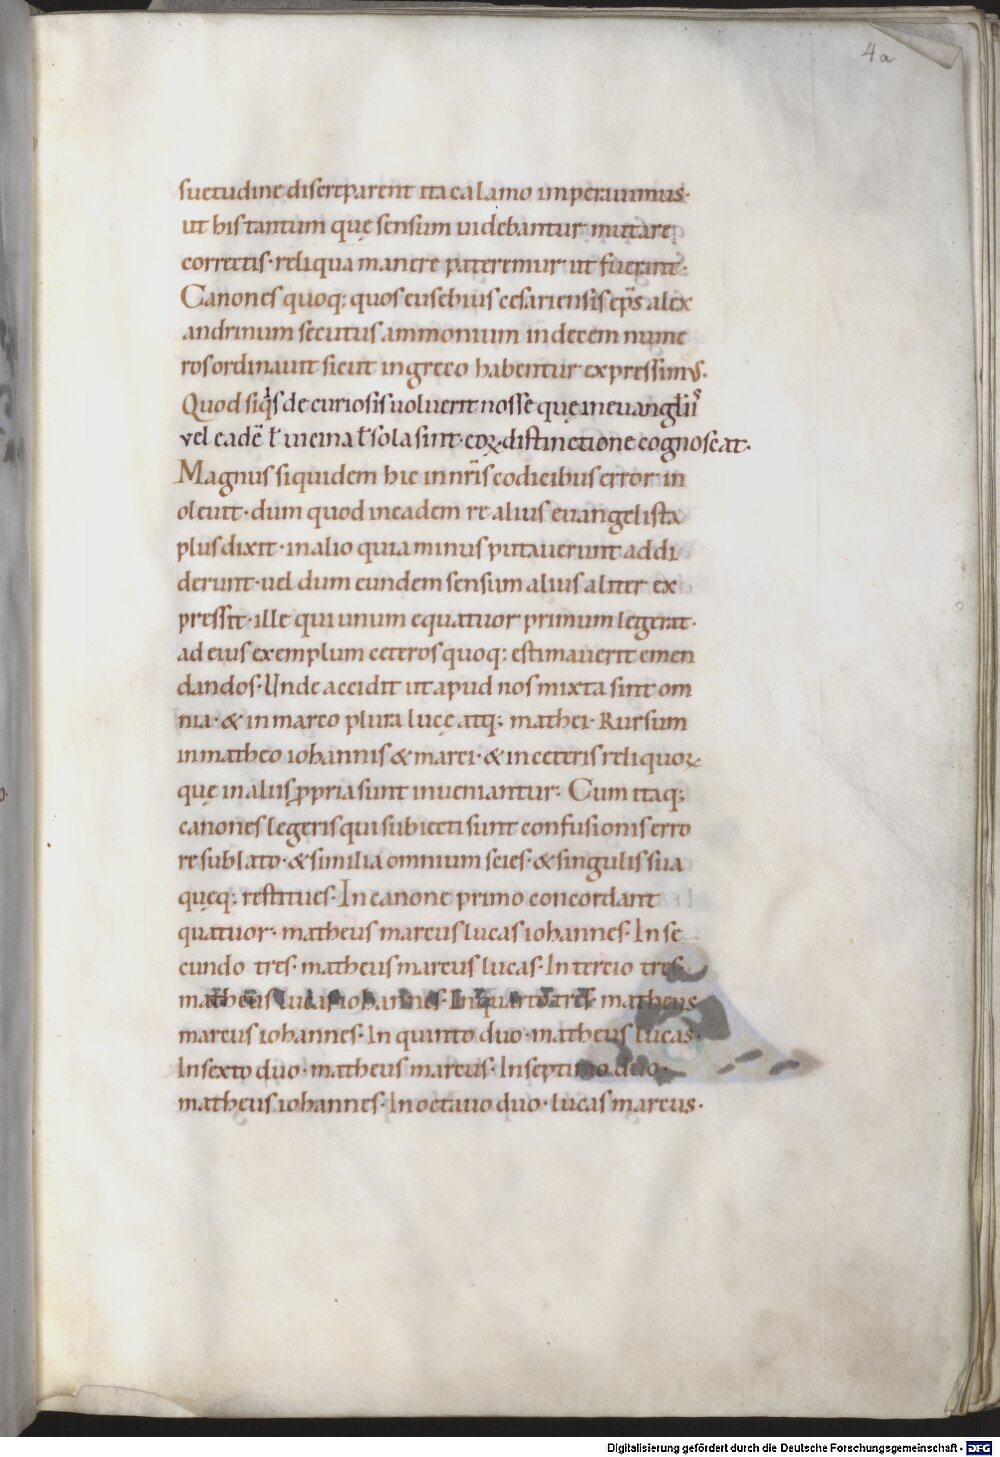 4a
suetudine discreparent ita calamo imperauimus·
ut his tantum quę sensum uidebantur mutare
correctis· reliqua manere pateremur ut fuerant·
Canones quoq; quos eusebius cesariensis ep̄s alex
andrinum secutus ammonium in decem nume
ros ordinauit sicut in greco habentur expressimus.
Quod siq̇s de curiosis uoluerit nosse quę in euangl̄iis
vel eadē l̄ uicina l̄ sola sint· eoꝝ distinctione cognoscat·
Magnus siquidem hic in nr̄is codicibus error in
oleuit· dum quod in eadem re alius euangelista
plus dixit· in alio quia minus putauerunt addi
derunt· uel dum eundem sensum alius aliter ex
pressit· ille qui unum e quatuor primum legerat·
ad eius exemplum ceteros quoq; estimauerit emen
dandos· Unde accidit ut apud nos mixta sint om
nia· & in marco plura lucę atq; mathei· Rursum
in matheo iohannis & marci· & in ceteris reliquoꝝ
quę in aliis ꝓpria sunt inueniantur· Cum itaq;
canones legeris qui subiecti sunt confusionis erro
re sublato· & similia omnium scies· & singulis sua
quęq; restitues· In canone primo concordant
quatuor· matheus marcus lucas iohannes· In se
cundo tres· matheus marcus lucas· In tercio tres·
matheus lucas iohannes· In quarto tres· matheus
marcus iohannes· In quinto duo· matheus lucas·
In sexto duo· matheus marcus· In septimo duo·
matheus iohannes· In octauo duo· lucas marcus·
Digitalisierung gefördert durch die Deutsche Forschungsgemeinschaft - DFG